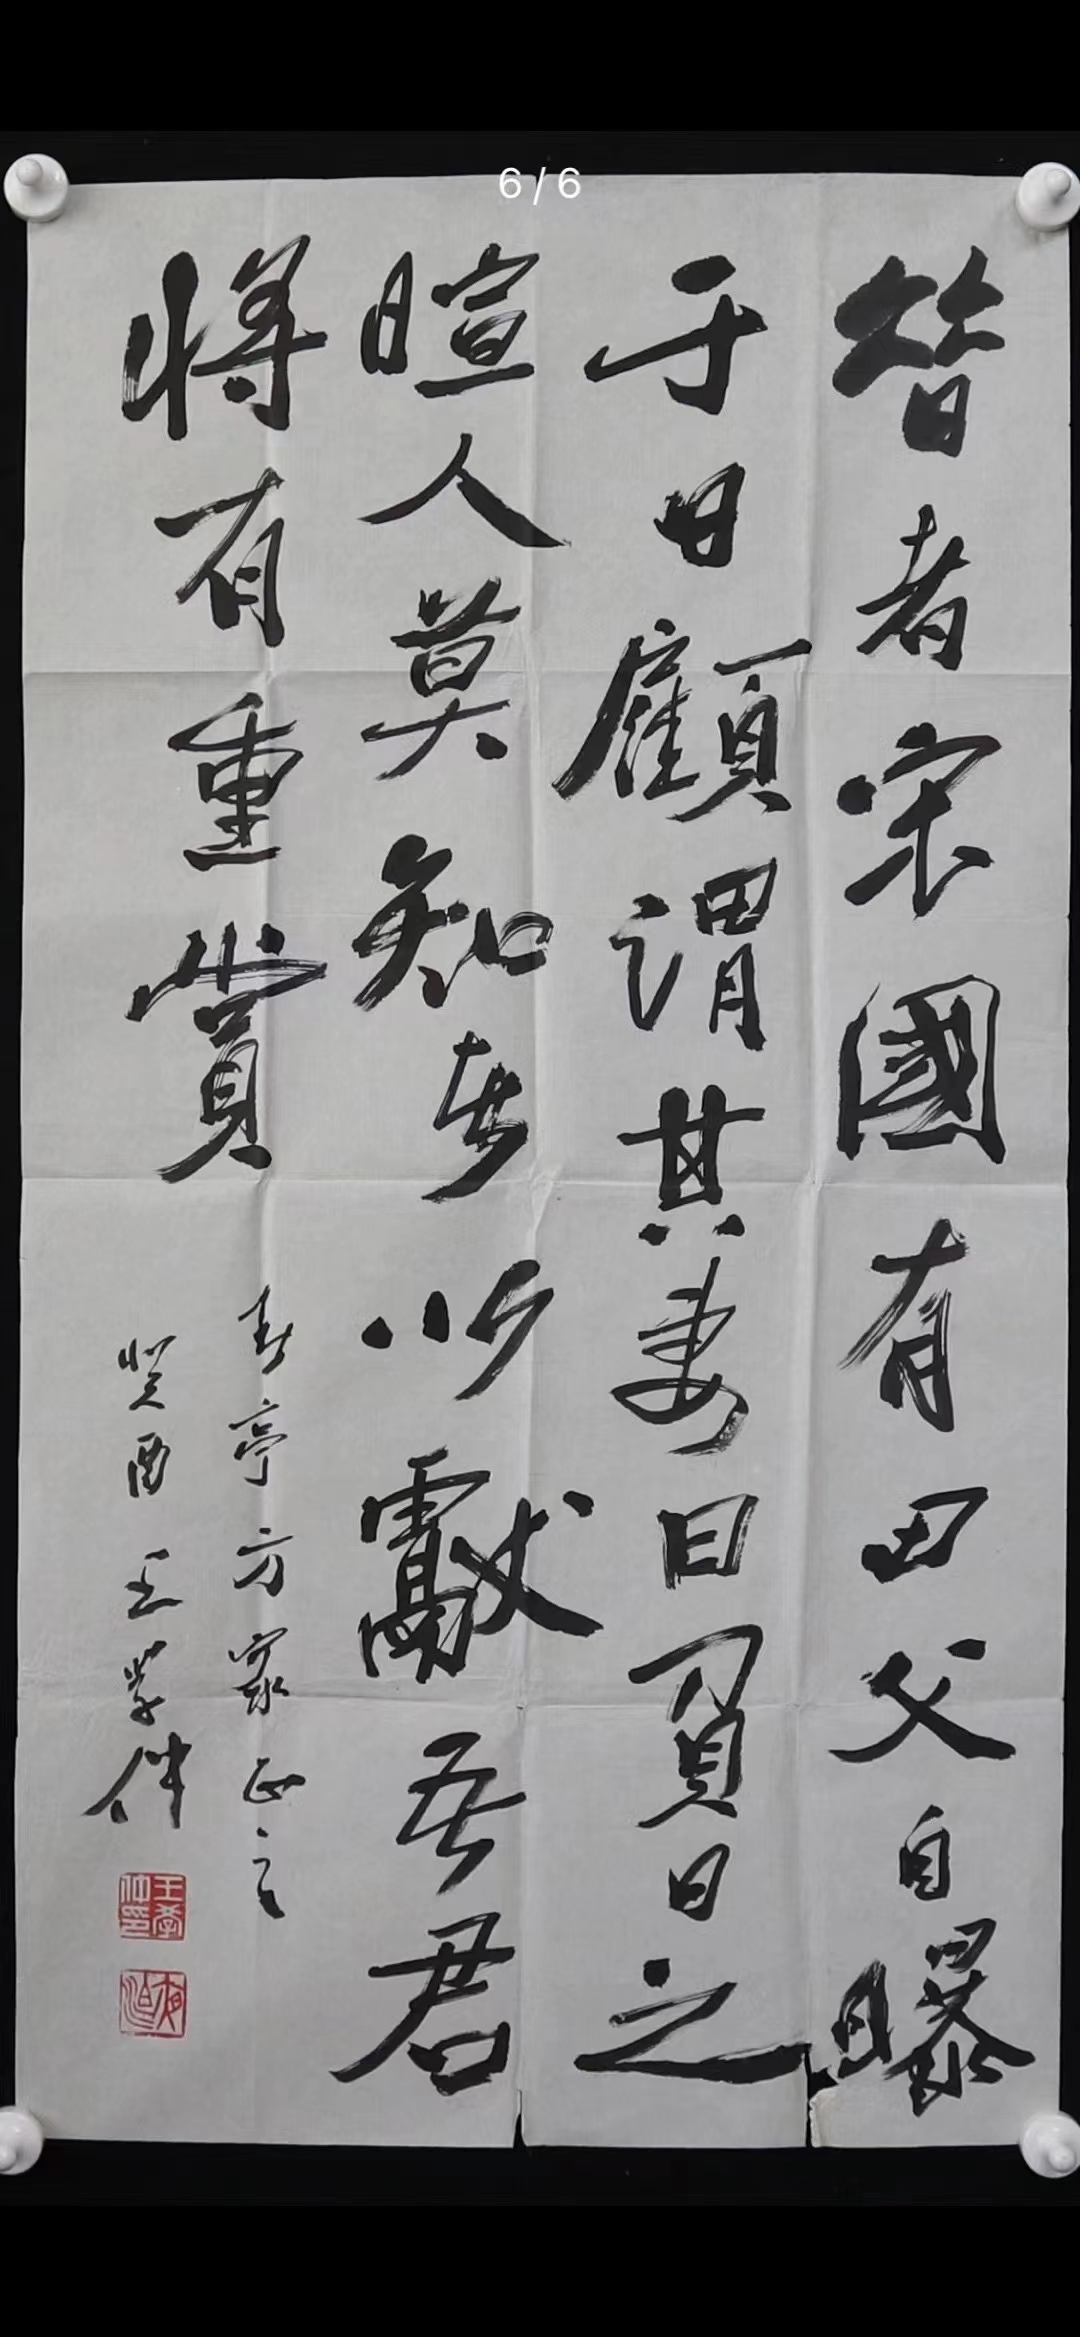 6/6
昔者宋國有田父自曝
于日顧謂其妻曰負日之
暄人莫知者以獻吾君
將有重賞
亭方家正之
癸酉王學仲
王學仲印
夜泊